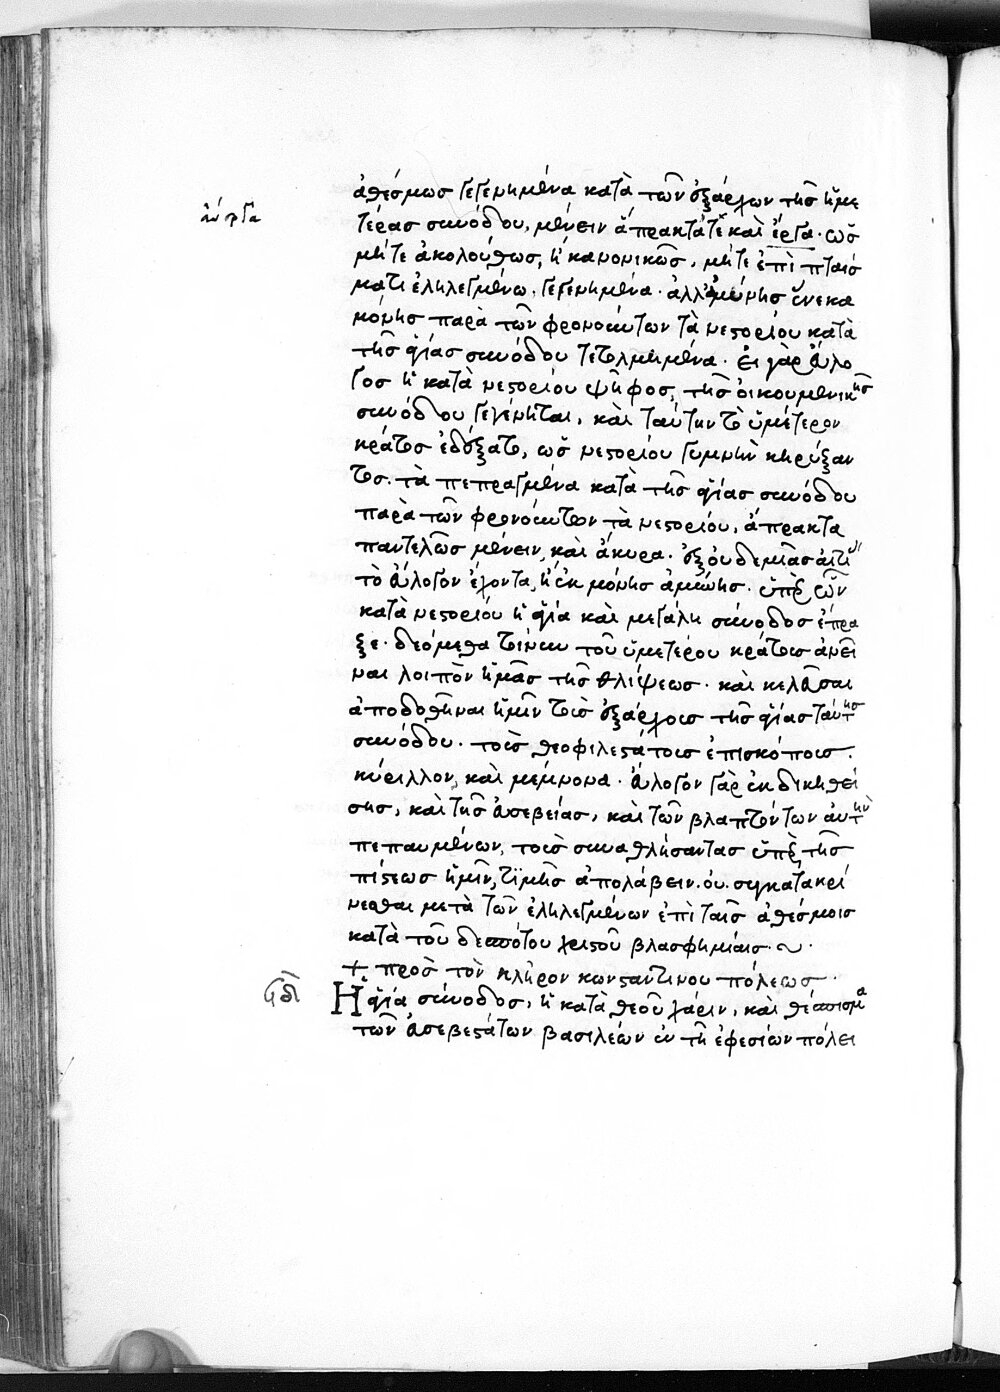 ἀθέσμως γεγενημένα κατὰ τῶν ἐξάρχων τῆς ἡμε
τέρας συνόδου, μένειν ἄπρακτά τε καὶ ἔργα· ὡς
ἄνεργα
μήτε ἀκολούθως, ἢ κανονικῶς, μήτε ἐπὶ πταίσ
ματι ἐληλεγμένω, γεγενημένα· ἀλλ' ἀμύνης ἕνεκα
μόνης παρὰ τῶν φρονούντων τὰ νεστορίου κατὰ
τῆς ἁγίας συνόδου τετολμημένα· εἰ γὰρ εὔλο
γος ἡ κατὰ νεστορίου ψῆφος, τῆς οἰκουμενικῆς
συνόδου γεγένηται, καὶ ταύτην τὸ ὑμέτερον
κράτος ἐδέξατο, ὡς νεστορίου γυμνὴν κηρύξαν
τος. τὰ πεπραγμένα κατὰ τῆς ἁγίας συνόδου
παρὰ τῶν φρονούντων τὰ νεστορίου, ἄπρακτα
παντελῶς μένειν, καὶ ἄκυρα· ἐξ οὐδεμιᾶς αἰτί
τὸ εὔλογον ἔχοντα, ἢ ἐκ μόνης ἀμύνης· ὑπὲρ ὧν
κατὰ νεστορίου ἡ ἁγία καὶ μεγάλη σύνοδος ἔπρα
ξε· δεόμεθα τοίνυν τοῦ ὑμετέρου κράτους ἀνεῖ
ναι λοιπὸν ἡμᾶς τῆς θλίψεως· καὶ κελεῦσαι
ἀποδοθῆναι ἡμῖν τοὺς ἐξάρχους τῆς ἁγίας ταύτης
συνόδου· τοὺς θεοφιλεστάτους ἐπισκόπους·
κύριλλον, καὶ μέμνονα· εὔλογον γὰρ ἐκδικηθεί
σης, καὶ τῆς εὐσεβείας, καὶ τῶν βλαπτόντων αὐτὴν
πεπαυμένων, τοὺς συναθλήσαντας ὑπὲρ τῆς
πίστεως ἡμῖν, τιμῆς ἀπολάβειν. οὐ συγκατακρί
νεσθαι μετὰ τῶν ἐληλεγμένων ἐπὶ ταῖς ἀθέσμοις
κατὰ τοῦ δεσπότου χριστοῦ βλασφημίαις·~·
+ πρὸς τὸν κλῆρον κωνσταντινουπόλεως·
Ἡ ἁγία σύνοδος, ἡ κατὰ θεοῦ χάριν, καὶ θέσπισμα
τῶν εὐσεβεστάτων βασιλέων ἐν τῇ ἐφεσίων πόλει